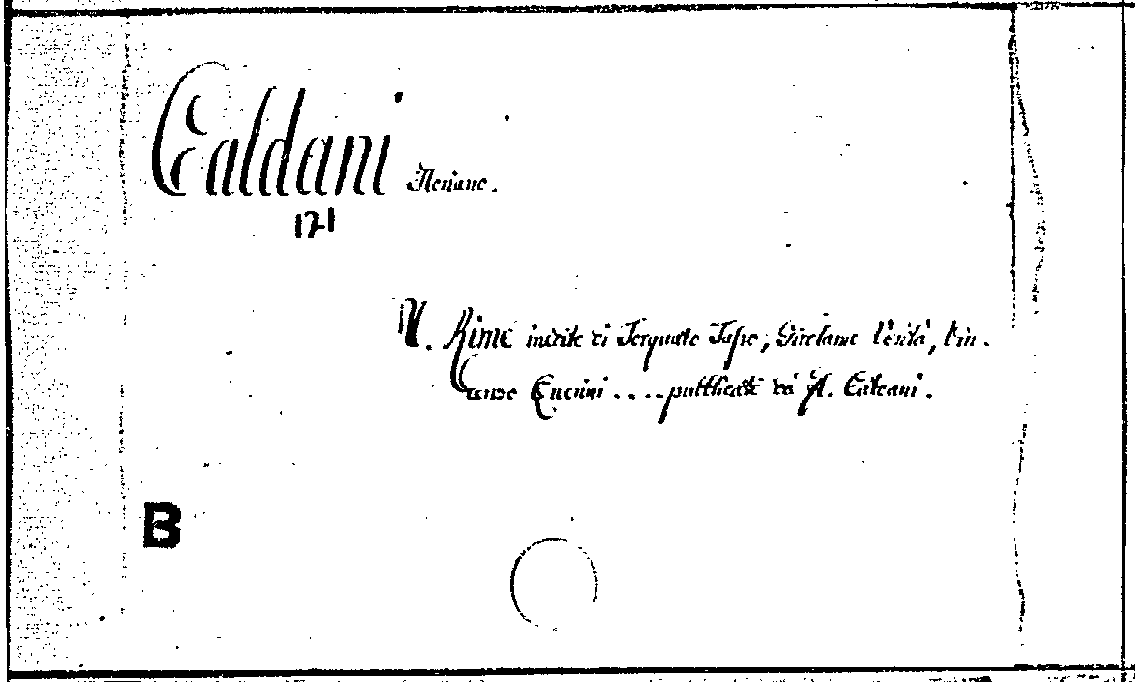 Caldani Floriano.
171
V. Rime inedite di Torquato Tasso, Girolamo Verità, Vin.
cenzo Cuccini .... pubblicate da F. Caldani.
B